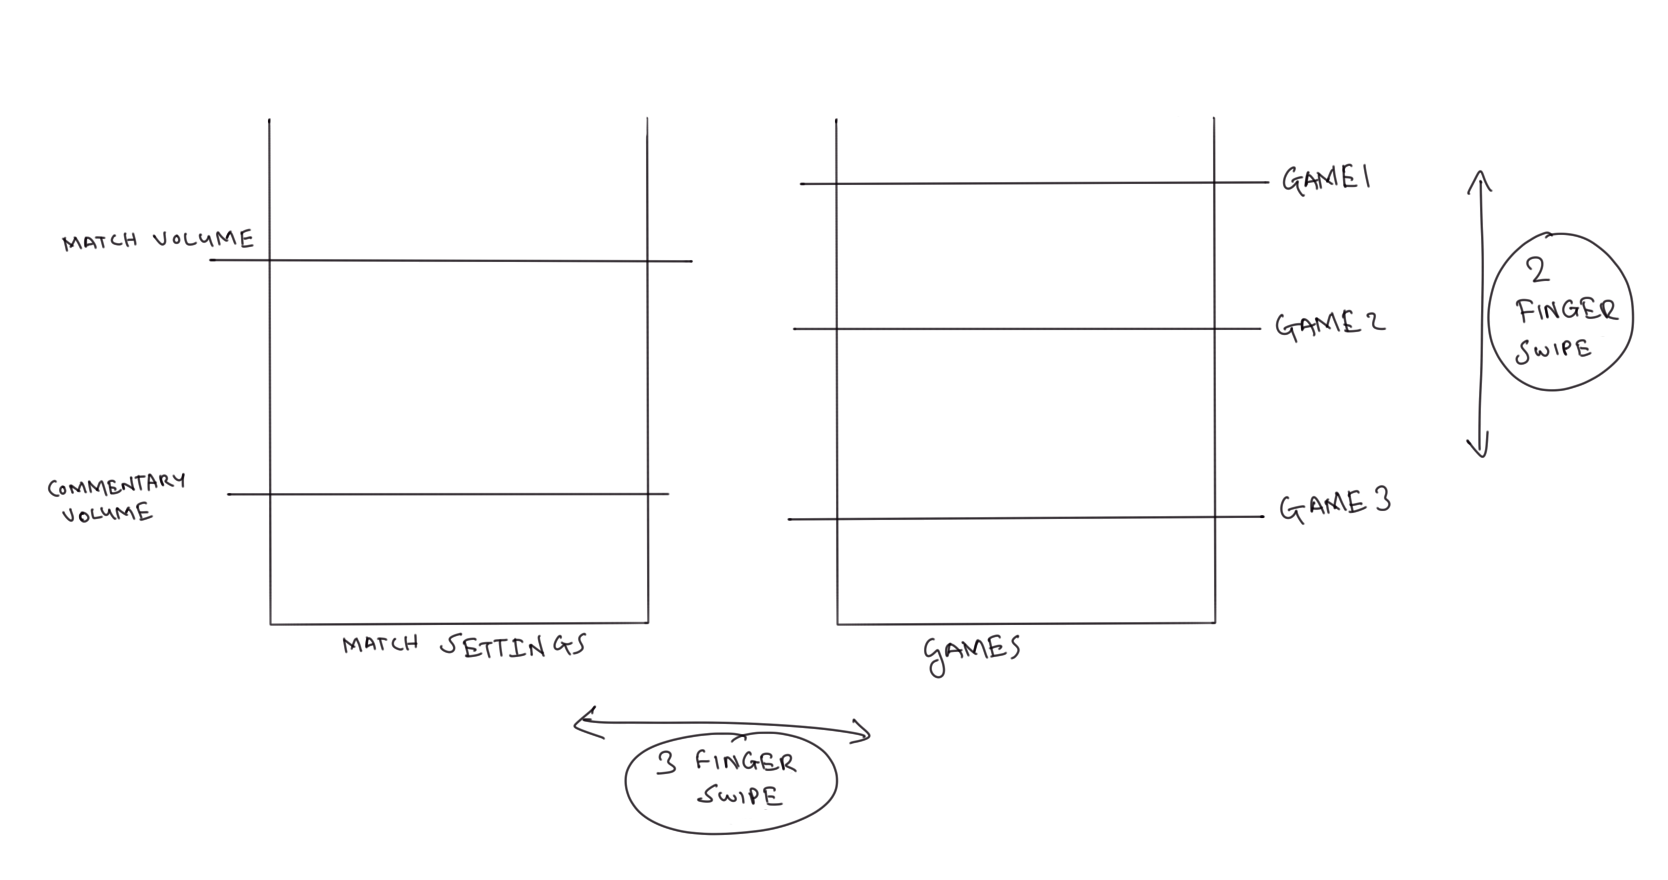 MATCH VOLUME
COMMENTARY
VOLUME
MATCH SETTINGS
GAME1
GAME 2
GAME 3
GAMES
2
FINGER
SWIPE
3 FINGER
SWIPE